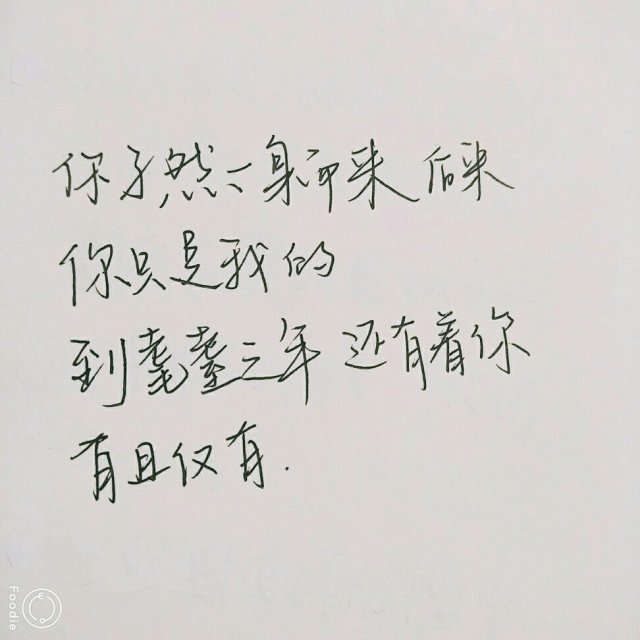 你孑然一身而来 后来
你只是我的
到耄耋之年 还有着你
有且仅有.
Foodie